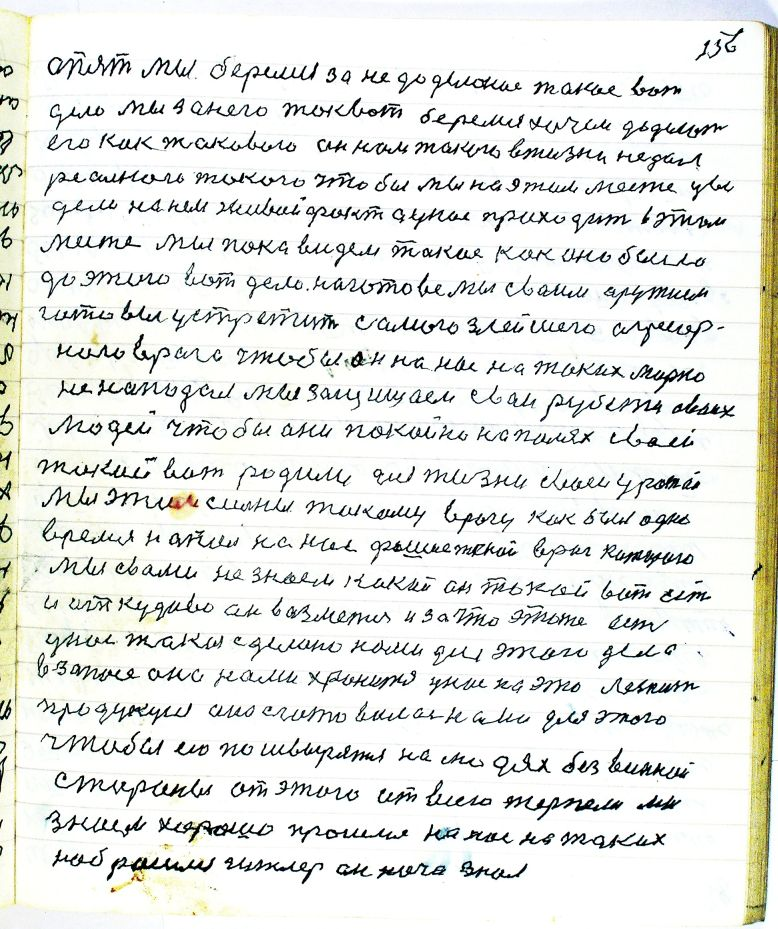 156
опят мы беремся за не доделоное такое вот
дело мы за него так вот беремся хочем доделот
его как такового он нам такого в жизни недал
реалного такого чтобы мы на этом месте уви
дели на нем живой факт а у нас приходит в этом
месте мы пока видем такое как оно было
до этого вот дело наготове мы своим аружием
готовы устретит самого злейшего агресер-
ного врага чтобы он на нас на таких марно
не нападал мы защищаем сваи рубежи своих
людей чтобы они покойно на полях своей
такой вот родили для жизни своей урожай
мы этим силны такому врагу как был одно
время напал на нас фашистский враг которого
мы свами не знаем какой он такой вот ест
и откудово он вазмется и за что это же ест
у нас такая сделано нами для этого дела
в запасе она нами хранится у нас на это лежит
продукция она сготовилас нами для этого
чтобы ею пошвырятся на людях без винной
стороны от этого от всего терпели мы
знаем хорошо прошлое на нас на таких
набросился гитлер он хоча знал